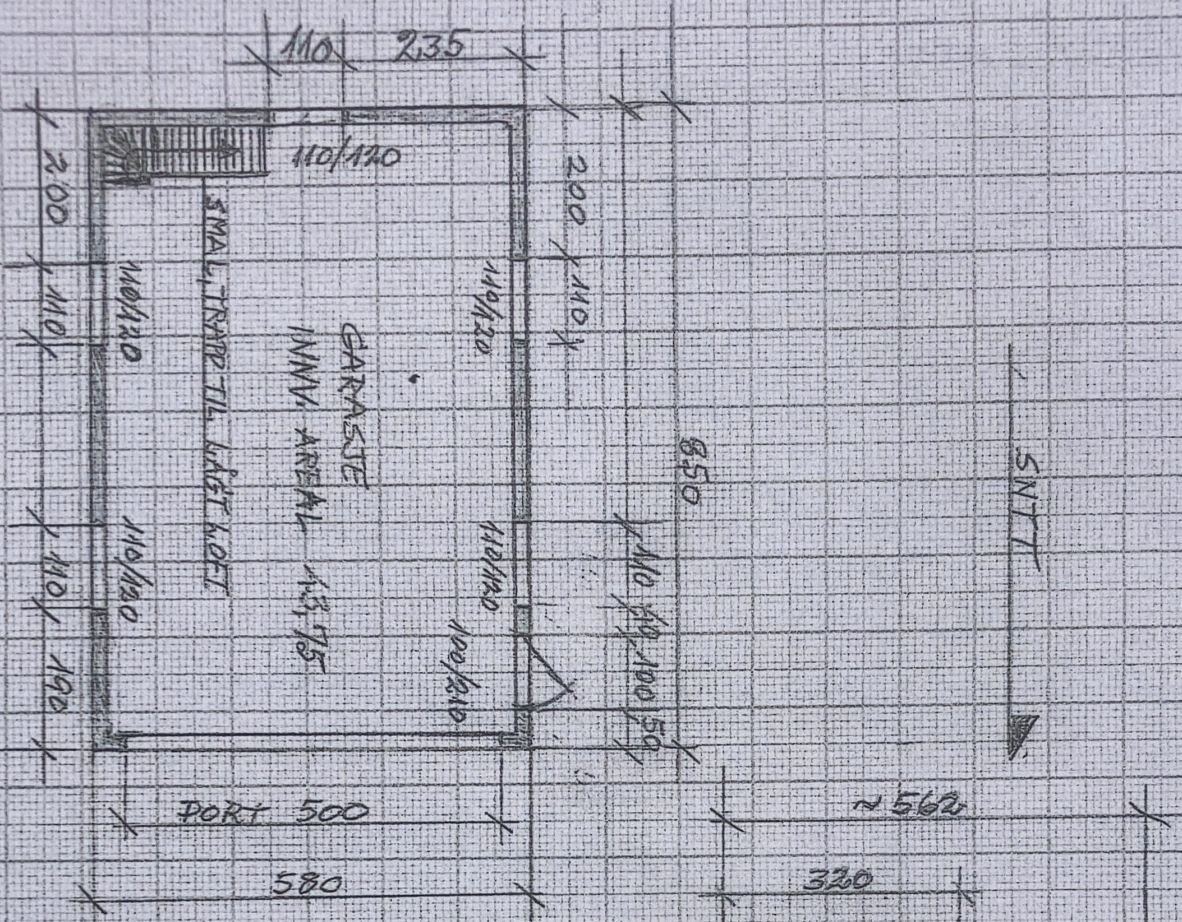 110 235
110/120
200
110
110
190
110/120
110/120
SMAL, TRAPP TIL LAGT LOFT
GARASJE
INNV. AREAL 43,75
110/120
110/120
100/210
200
110
850
110
100
50
SNITT
PORT 500
580
~562
320